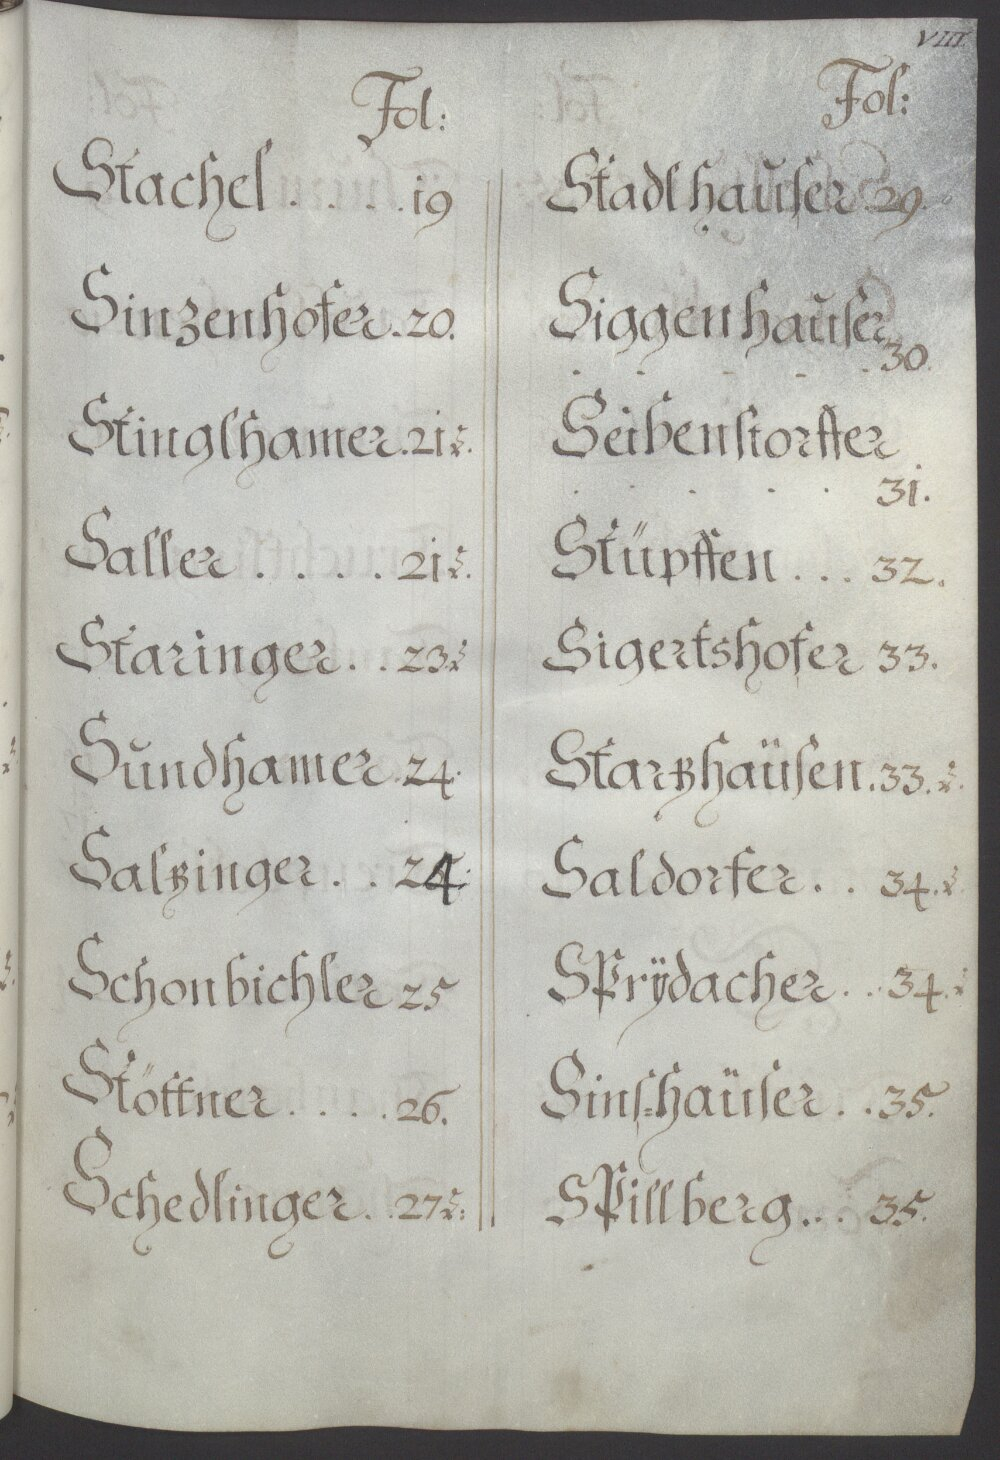 VIII.
Fol:
Stachel . . . . . 19
Sinzenhofer . 20.
Stinglhamer . 21 .
Saller . . . . . 21 .
Staringer . . 23
Sundhamer . 24.
Salzinger . . 24.
Schonbichler 25
Stöttner . . . . 26.
Schedlinger . . 27 :
Fol:
Stadlhaŭser . 29.
Siggenhaŭser
. . . . . . 30.
Seibenstorffer
. . . . . 31.
Stüpffen . . . 32.
Sigertshofer 33.
Starzhäüsen . 33. .
Saldorfer . . 34.
SPrÿdacher . . 34.
Sins=haüser . . 35.
SPillberg . . . 35.